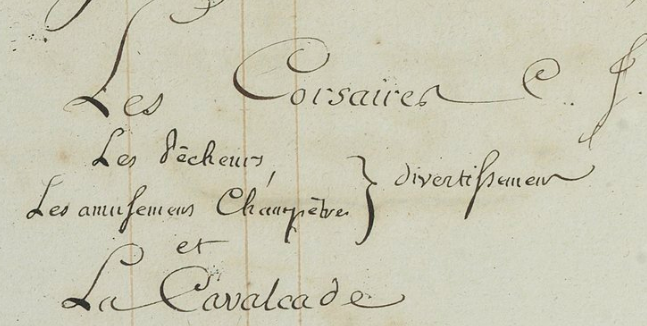 Les Corsaires C. J.
Les Pêcheurs,
Les amusemens Champêtres } divertissemens
et
La Cavalcade